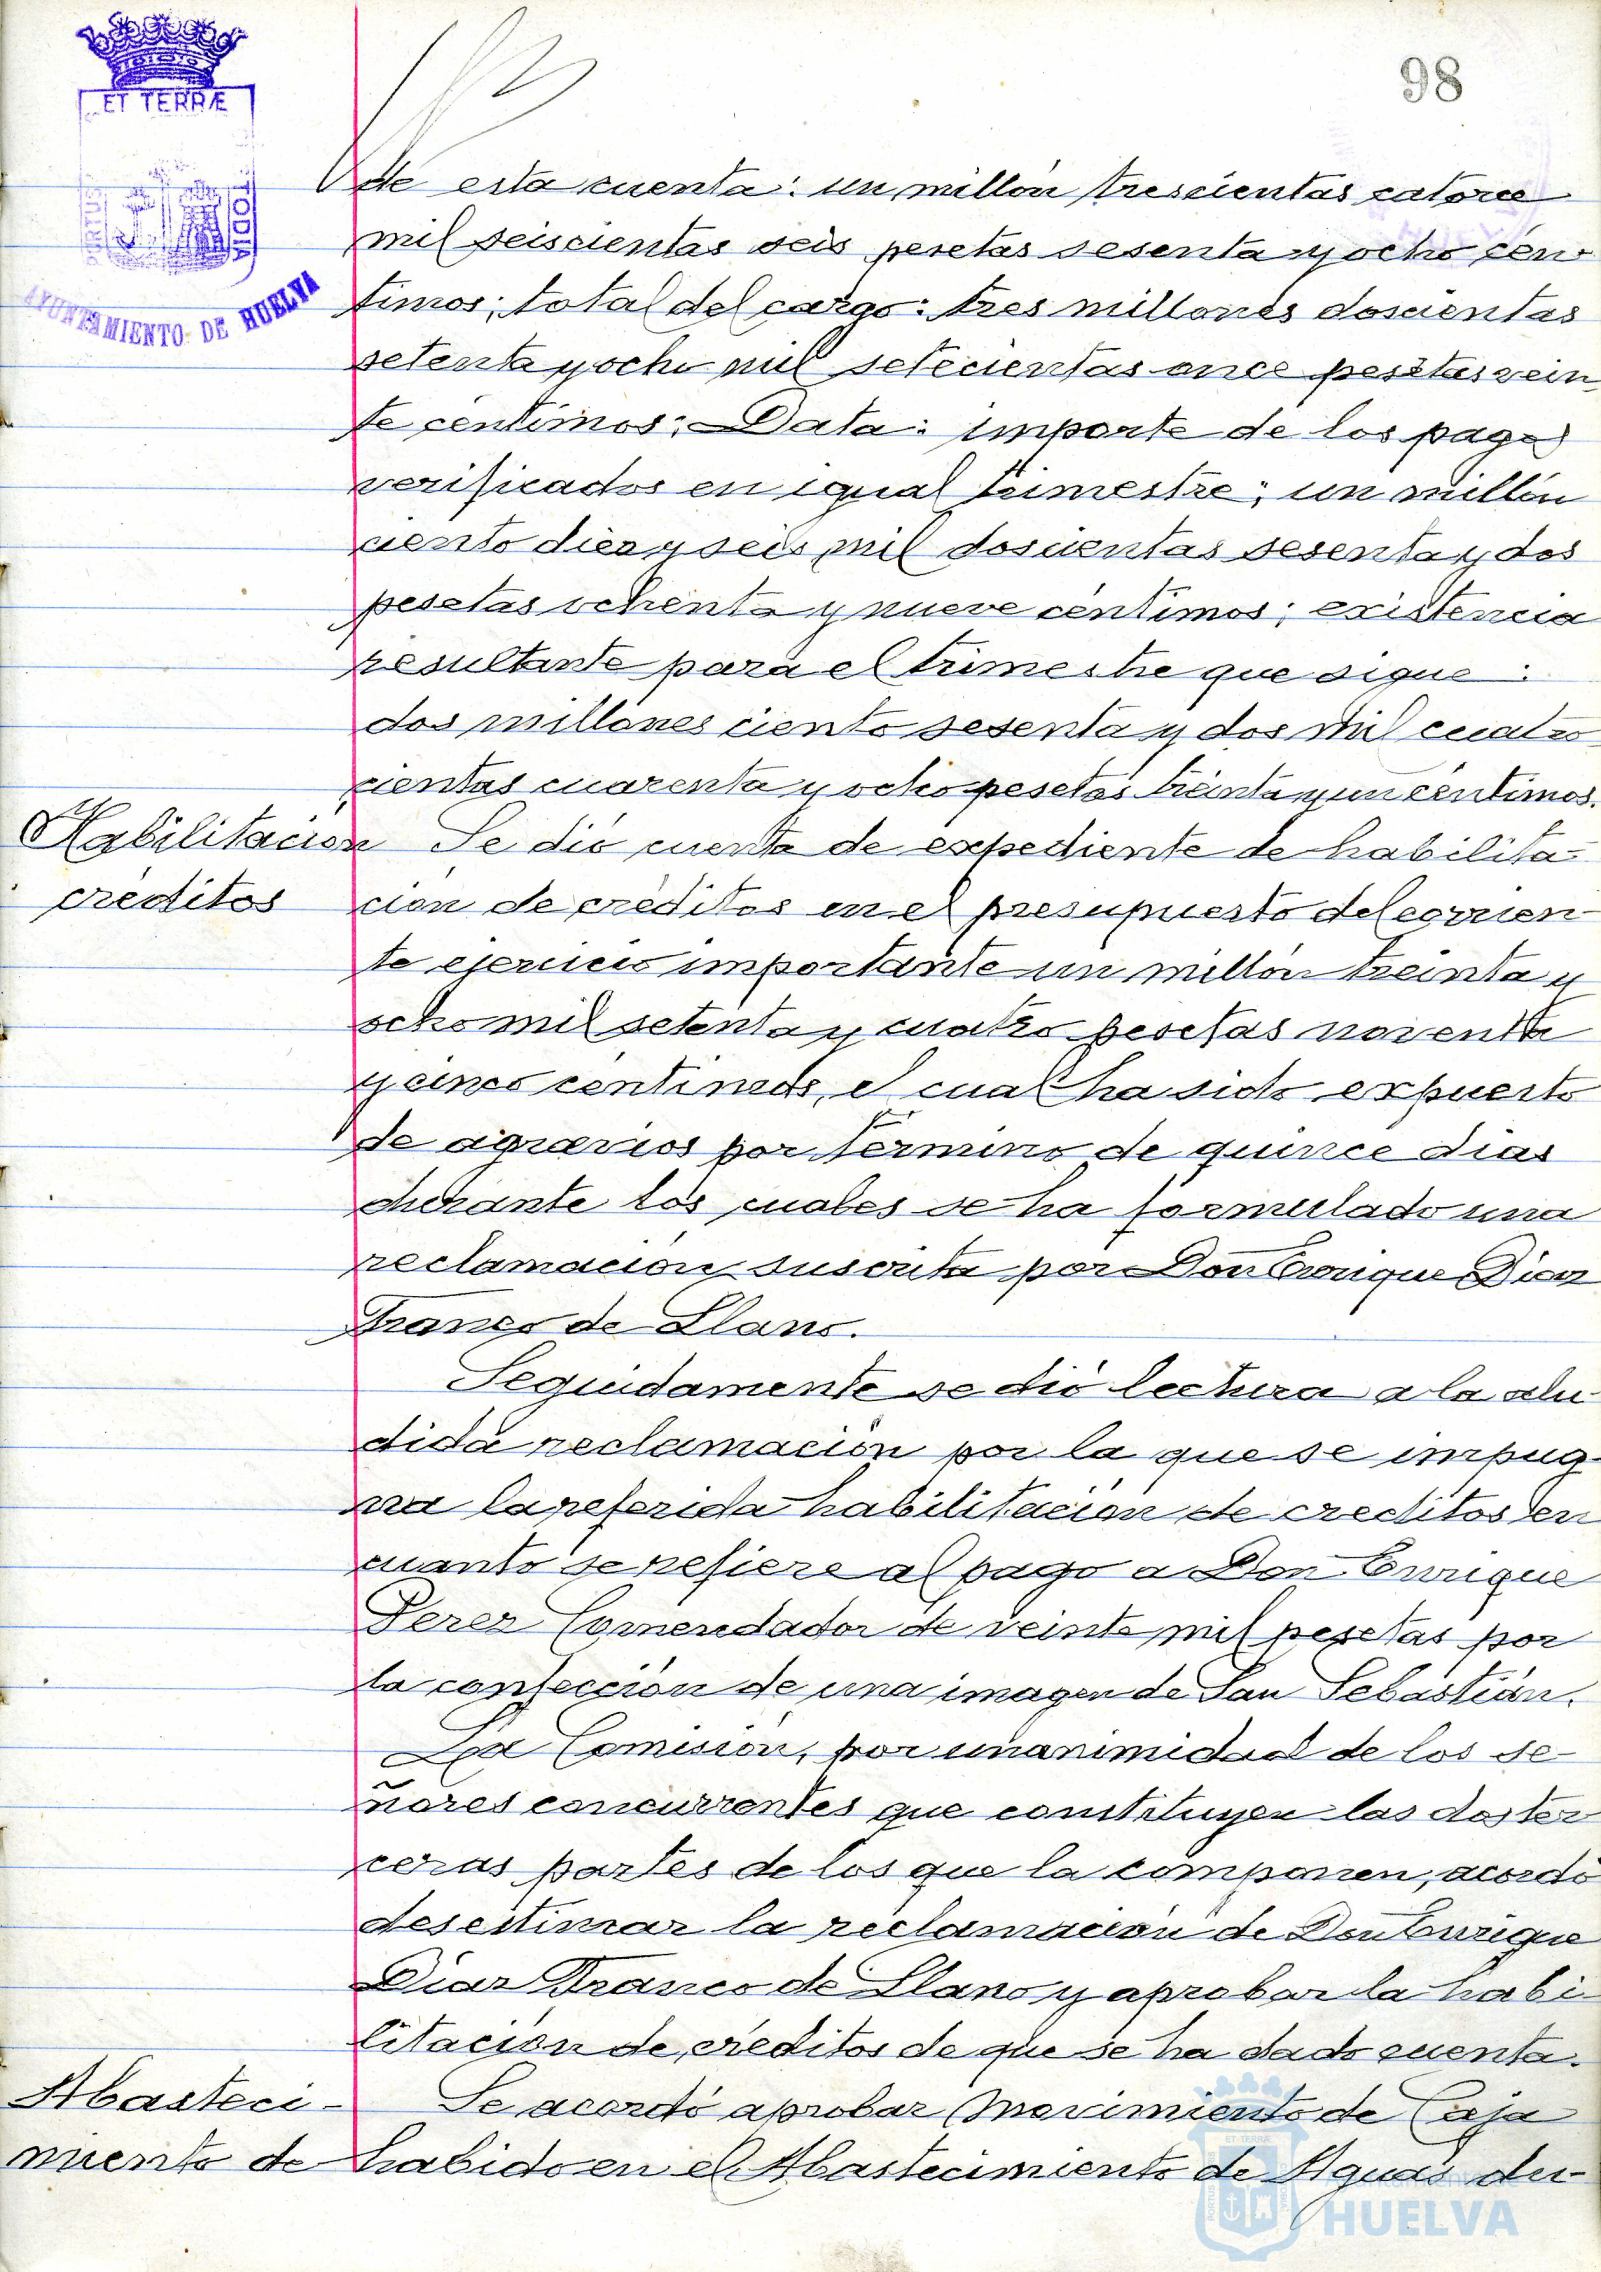 98
ET TERRÆ
PORTUS
TODIA
AYUNTAMIENTO DE HUELVA
de esta cuenta: un millón trescientas catorce
mil seiscientas seis pesetas sesenta y ocho cen
timos; total del cargo: tres millones doscientas
setenta y ocho mil setecientas once pesetas vein
te centimos; Data: importe de los pagos
verificados en igual trimestre; un millón
ciento diez y seis mil doscientas sesenta y dos
pesetas ochenta y nueve céntimos; existencia
resultante para el trimestre que sigue:
dos millones ciento sesenta y dos mil cuatro
cientas cuarenta y ocho pesetas treinta y un céntimos.
Habilitacion
creditos
Se dió cuenta de expediente de habilita-
ción de créditos en el presupuesto del corrien-
te ejercicio importante un millón treinta y
ocho mil setenta y cuatro pesetas noventa
y cinco centimos, el cual ha sido expuesto
de agravios por término de quince dias
durante los cuales se ha formulado una
reclamación suscrita por Don Enrique Diaz
Franco de Llano.
Seguidamente se dió lectura a la alu-
dida reclamación por la que se impug-
na la referida habilitación de creditos en
cuanto se refiere al pago a Don Enrique
Perez Comendador de veinte mil pesetas por
la confección de una imagen de San Sebastián.
La Comisión, por unanimidad de los se-
ñores concurrentes que constituyen las dos ter
ceras partes de los que la componen, acordó
desestimar la reclamación de Don Enrique
Diaz Franco de Llano y aprobar la habi-
litación de créditos de que se ha dado cuenta.
Abasteci-
miento de
Se acordó aprobar Movimiento de Caja
habido en el Abastecimiento de Aguas du-
HUELVA